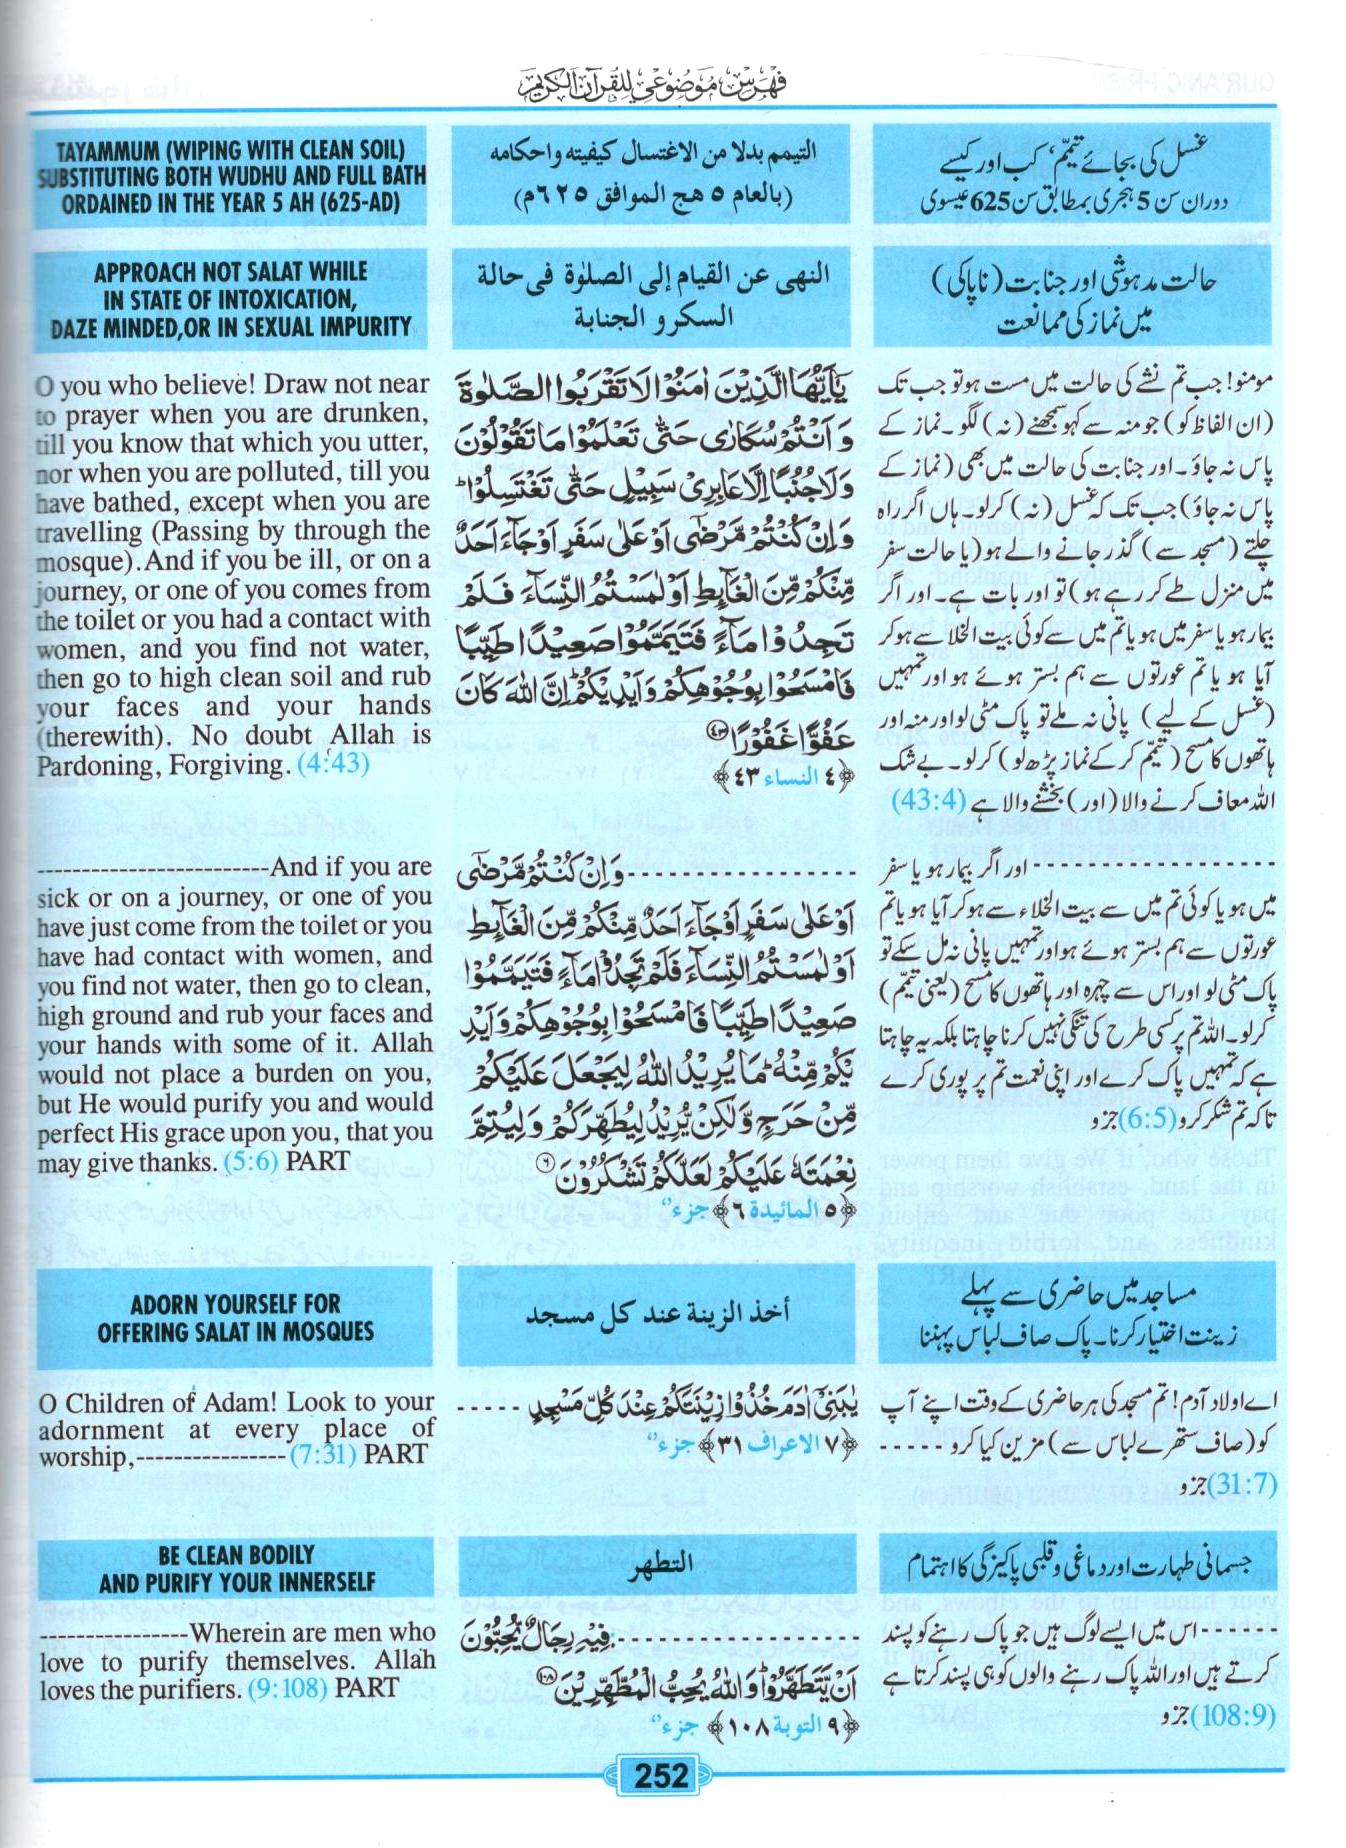 فهرس موضوعي للقرآن الكريم
TAYAMMUM (WIPING WITH CLEAN SOIL)
SUBSTITUTING BOTH WUDHU AND FULL BATH
ORDAINED IN THE YEAR 5 AH (625-AD)
التيمم بدلا من الاغتسال كيفيته واحكامه
(بالعام ٥ هج الموافق ٦٢٥م)
غسل کی بجائے تیمّم، کب اور کیسے
دوران سن 5 ہجری بمطابق سن 625 عیسوی
APPROACH NOT SALAT WHILE
IN STATE OF INTOXICATION,
DAZE MINDED,OR IN SEXUAL IMPURITY
النهى عن القيام إلى الصلوٰة فى حالة
السكرو الجنابة
حالت مدہوشی اور جنابت (ناپاکی)
میں نماز کی ممانعت
O you who believe! Draw not near
to prayer when you are drunken,
till you know that which you utter,
nor when you are polluted, till you
have bathed, except when you are
travelling (Passing by through the
mosque).And if you be ill, or on a
journey, or one of you comes from
the toilet or you had a contact with
women, and you find not water,
then go to high clean soil and rub
your faces and your hands
(therewith). No doubt Allah is
Pardoning, Forgiving. (4:43)
يٰٓاَيُّهَا الَّذِيْنَ اٰمَنُوْا لَا تَقْرَبُوا الصَّلٰوةَ
وَاَنْتُمْ سُكَارٰى حَتّٰى تَعْلَمُوْا مَا تَقُوْلُوْنَ
وَلَا جُنُبًا اِلَّا عَابِرِيْ سَبِيْلٍ حَتّٰى تَغْتَسِلُوْا ۭ
وَاِنْ كُنْتُمْ مَّرْضٰٓى اَوْ عَلٰى سَفَرٍ اَوْ جَاۗءَ اَحَدٌ
مِّنْكُمْ مِّنَ الْغَاۗىِٕطِ اَوْ لٰمَسْتُمُ النِّسَاۗءَ فَلَمْ
تَجِدُوْا مَاۗءً فَتَيَمَّمُوْا صَعِيْدًا طَيِّبًا
فَامْسَحُوْا بِوُجُوْهِكُمْ وَاَيْدِيْكُمْ ۭ اِنَّ اللّٰهَ كَانَ
عَفُوًّا غَفُوْرًا ﴿٤٣﴾
﴿٤ النساء ٤٣﴾
مومنو! جب تم نشے کی حالت میں مست ہو تو جب تک
(ان الفاظ کو) جو منہ سے کہو سمجھنے (نہ) لگو۔ نماز کے
پاس نہ جاؤ۔ اور جنابت کی حالت میں بھی (نماز کے
پاس نہ جاؤ) جب تک کہ غسل (نہ) کرلو۔ ہاں اگر راہ
چلتے (مسجد سے) گذر جانے والے ہو (یا حالت سفر
میں منزل طے کر رہے ہو) تو اور بات ہے۔ اور اگر
بیمار ہو یا سفر میں ہو یا تم میں سے کوئی بیت الخلا سے ہو کر
آیا ہو یا تم عورتوں سے ہم بستر ہوئے ہو اور تمہیں
(غسل کے لیے) پانی نہ ملے تو پاک مٹی لو اور منہ اور
ہاتھوں کا مسح (تیمم کر کے نماز پڑھ لو) کرلو۔ بے شک
اللہ معاف کرنے والا (اور) بخشنے والا ہے (43:4)
-------------------------And if you are
sick or on a journey, or one of you
have just come from the toilet or you
have had contact with women, and
you find not water, then go to clean,
high ground and rub your faces and
your hands with some of it. Allah
would not place a burden on you,
but He would purify you and would
perfect His grace upon you, that you
may give thanks. (5:6) PART
-----------------وَاِنْ كُنْتُمْ مَّرْضٰٓى
اَوْ عَلٰى سَفَرٍ اَوْ جَاۗءَ اَحَدٌ مِّنْكُمْ مِّنَ الْغَاۗىِٕطِ
اَوْ لٰمَسْتُمُ النِّسَاۗءَ فَلَمْ تَجِدُوْا مَاۗءً فَتَيَمَّمُوْا
صَعِيْدًا طَيِّبًا فَامْسَحُوْا بِوُجُوْهِكُمْ وَاَيْدِ
يْكُمْ مِّنْهُ ۭ مَا يُرِيْدُ اللّٰهُ لِيَجْعَلَ عَلَيْكُمْ
مِّنْ حَرَجٍ وَّلٰكِنْ يُّرِيْدُ لِيُطَهِّرَكُمْ وَلِيُتِمَّ
نِعْمَتَهٗ عَلَيْكُمْ لَعَلَّكُمْ تَشْكُرُوْنَ ﴿٦﴾
﴿٥ المائيدة ٦﴾ جزء
-----------------اور اگر بیمار ہو یا سفر
میں ہو یا کوئی تم میں سے بیت الخلاء سے ہو کر آیا ہو یا تم
عورتوں سے ہم بستر ہوئے ہو اور تمہیں پانی نہ مل سکے تو
پاک مٹی لو اور اس سے چہرہ اور ہاتھوں کا مسح (یعنی تیمم)
کرلو۔ اللہ تم پر کسی طرح کی تنگی نہیں کرنا چاہتا بلکہ یہ چاہتا
ہے کہ تمہیں پاک کرے اور اپنی نعمت تم پر پوری کرے
تاکہ تم شکر کرو (6:5) جزو
ADORN YOURSELF FOR
OFFERING SALAT IN MOSQUES
أخذ الزينة عند كل مسجد
مساجد میں حاضری سے پہلے
زینت اختیار کرنا۔ پاک صاف لباس پہننا
O Children of Adam! Look to your
adornment at every place of
worship,---------------- (7:31) PART
يٰبَنِيْٓ اٰدَمَ خُذُوْا زِيْنَتَكُمْ عِنْدَ كُلِّ مَسْجِدٍ -----
﴿٧ الاعراف ٣١﴾ جزء
اے اولاد آدم! تم مسجد کی ہر حاضری کے وقت اپنے آپ
کو (صاف ستھرے لباس سے) مزین کیا کرو -----
(31:7) جزو
BE CLEAN BODILY
AND PURIFY YOUR INNERSELF
التطهر
جسمانی طہارت اور دماغی و قلبی پاکیزگی کا اہتمام
----------------Wherein are men who
love to purify themselves. Allah
loves the purifiers. (9:108) PART
------------فِيْهِ رِجَالٌ يُّحِبُّوْنَ
اَنْ يَّتَطَهَّرُوْا ۭ وَاللّٰهُ يُحِبُّ الْمُطَّهِّرِيْنَ ﴿١٠٨﴾
﴿٩ التوبة ١٠٨﴾ جزء
------اس میں ایسے لوگ ہیں جو پاک رہنے کو پسند
کرتے ہیں اور اللہ پاک رہنے والوں کو ہی پسند کرتا ہے
(108:9) جزو
252